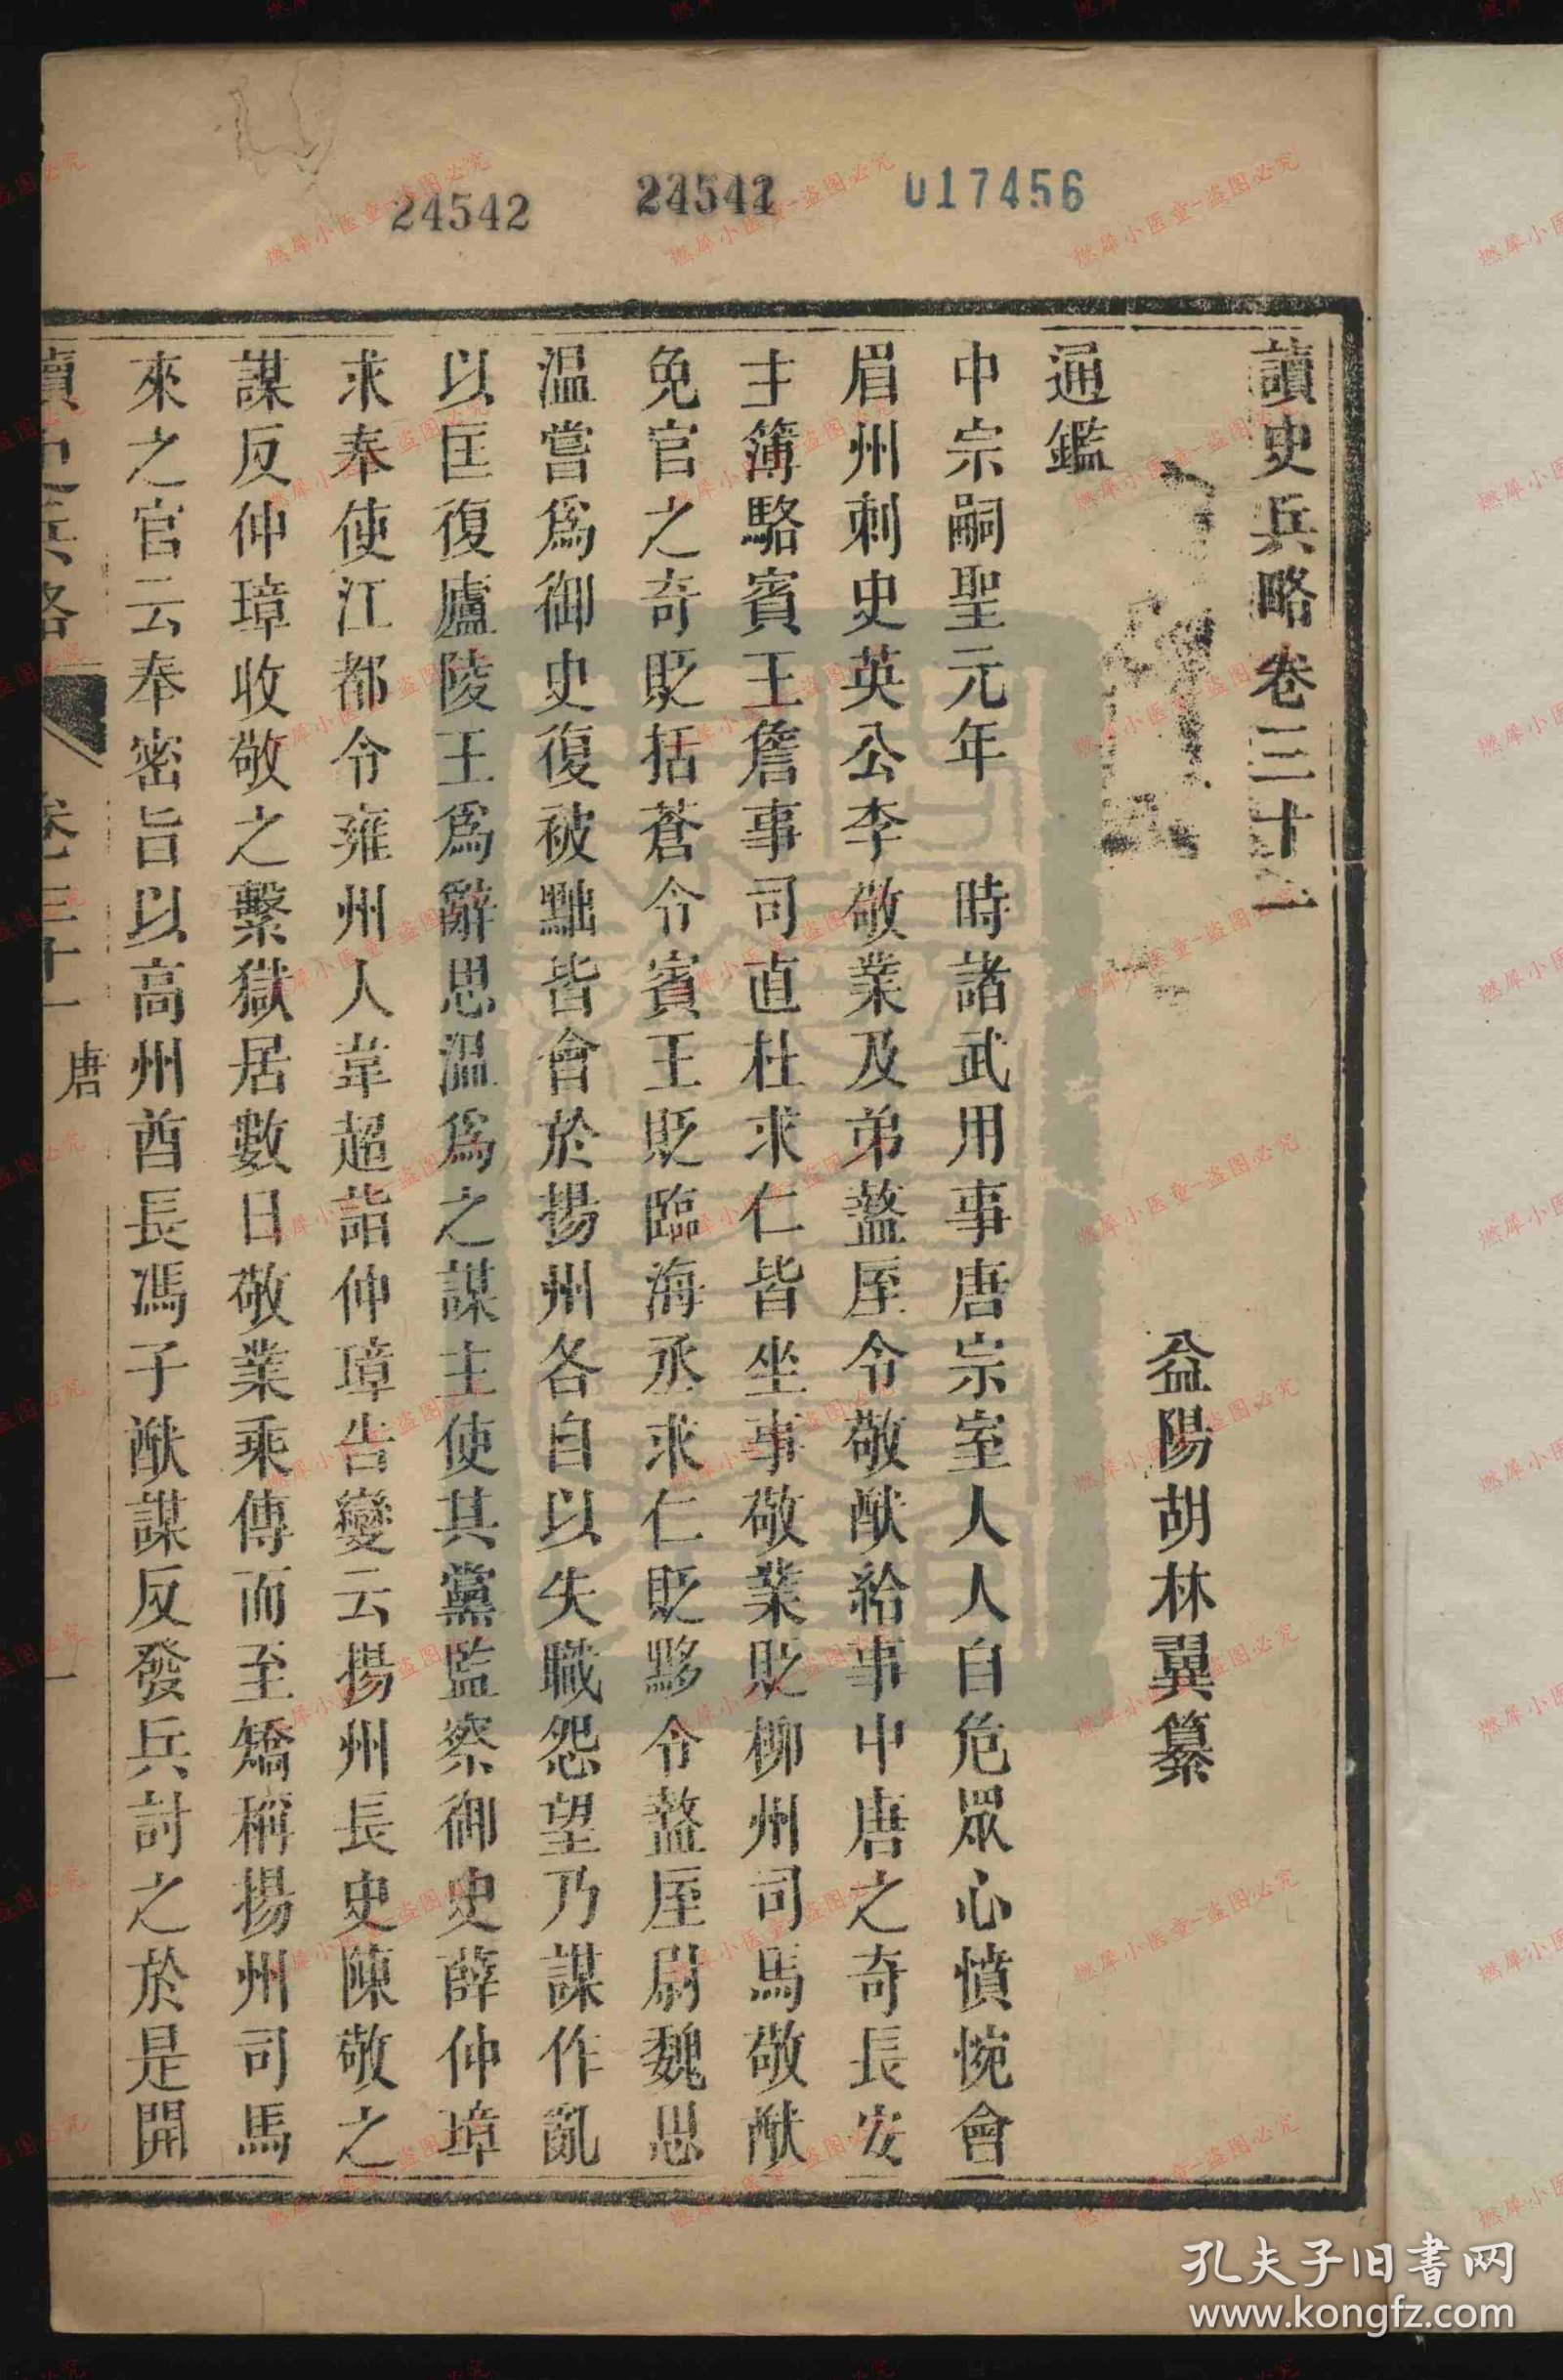 24542
017456
讀史兵略卷三十一
益陽胡林翼纂
通鑑
中宗嗣聖元年 時諸武用事唐宗室人人自危眾心憤惋會
眉州刺史英公李敬業及弟盩厔令敬猷給事中唐之奇長安
主簿駱賓王詹事司直杜求仁皆坐事敬業貶柳州司馬敬猷
免官之奇貶括蒼令賓王貶臨海丞求仁貶黟令盩厔尉魏思
温嘗爲御史復被黜皆會於揚州各自以失職怨望乃謀作亂
以匡復廬陵王爲辭思温爲之謀主使其黨監察御史薛仲璋
求奉使江都令雍州人韋超詣仲璋告變云揚州長史陳敬之
謀反仲璋收敬之繫獄居數日敬業乘傳而至矯稱揚州司馬
來之官云奉密旨以高州酋長馮子猷謀反發兵討之於是開
讀史兵略 卷三十一 唐 一
孔夫子旧书网
www.kongfz.com
燃犀小医堂-盗图必究